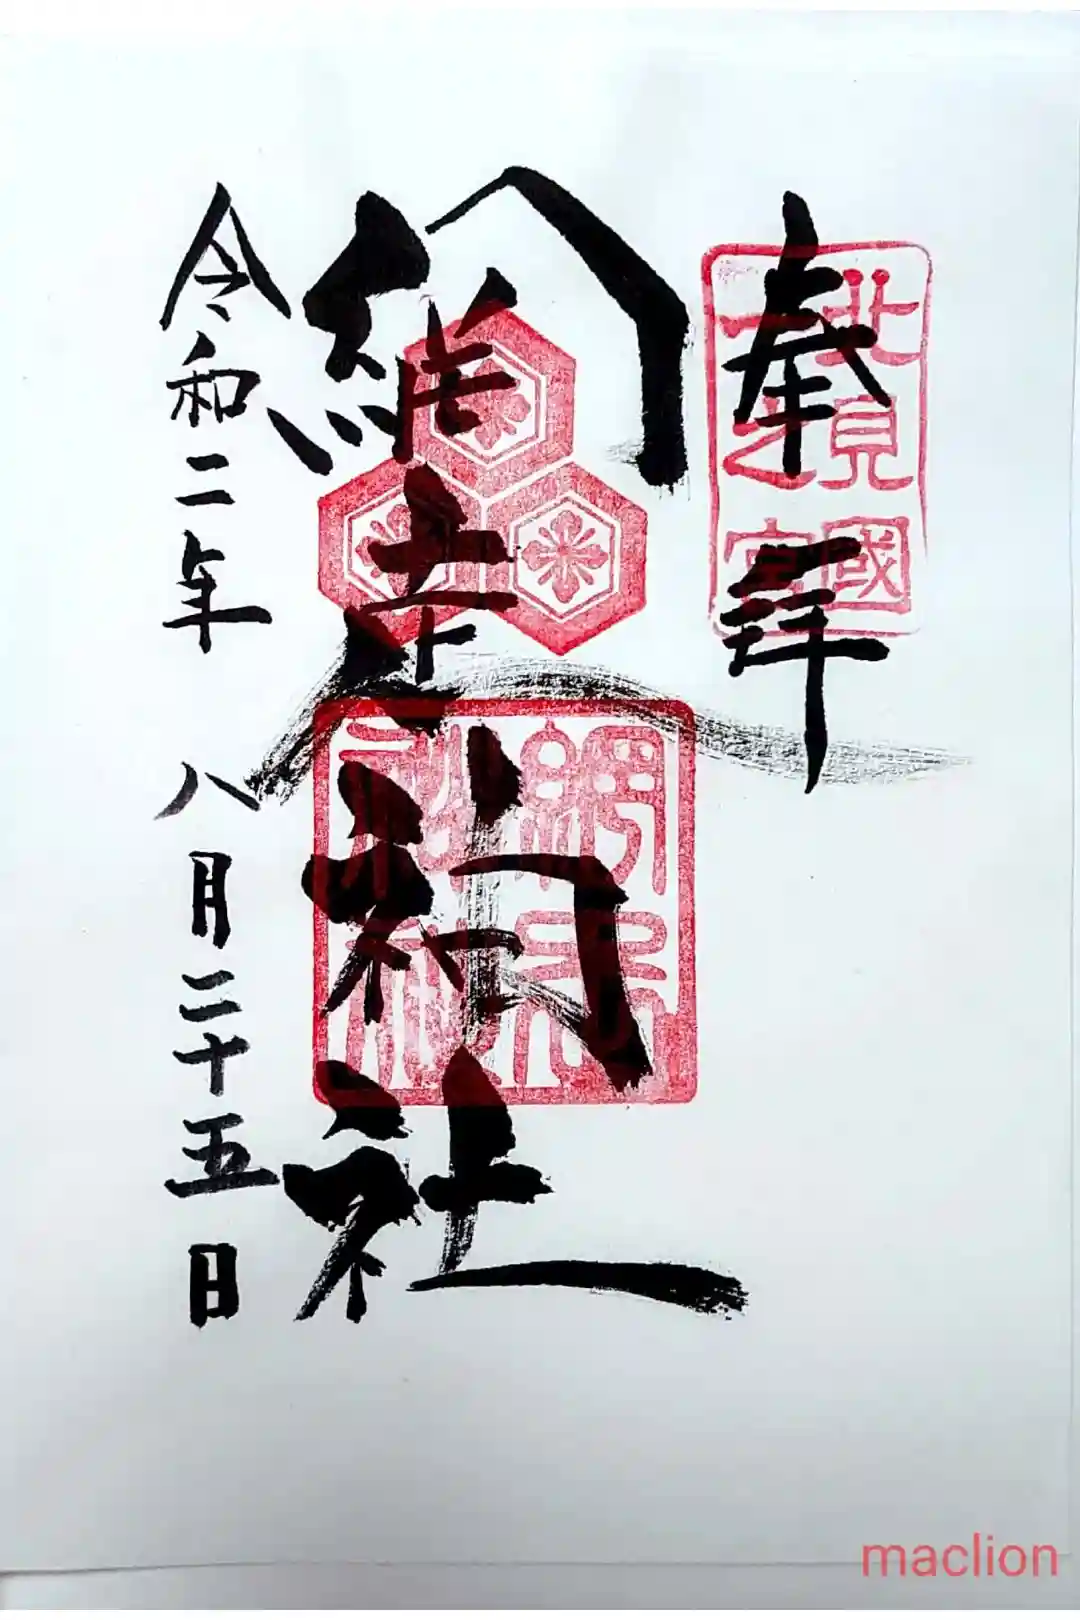 奉拝
北見國
一之宮
網走神社
網走
神社
令和二年 八月二十五日
maclion